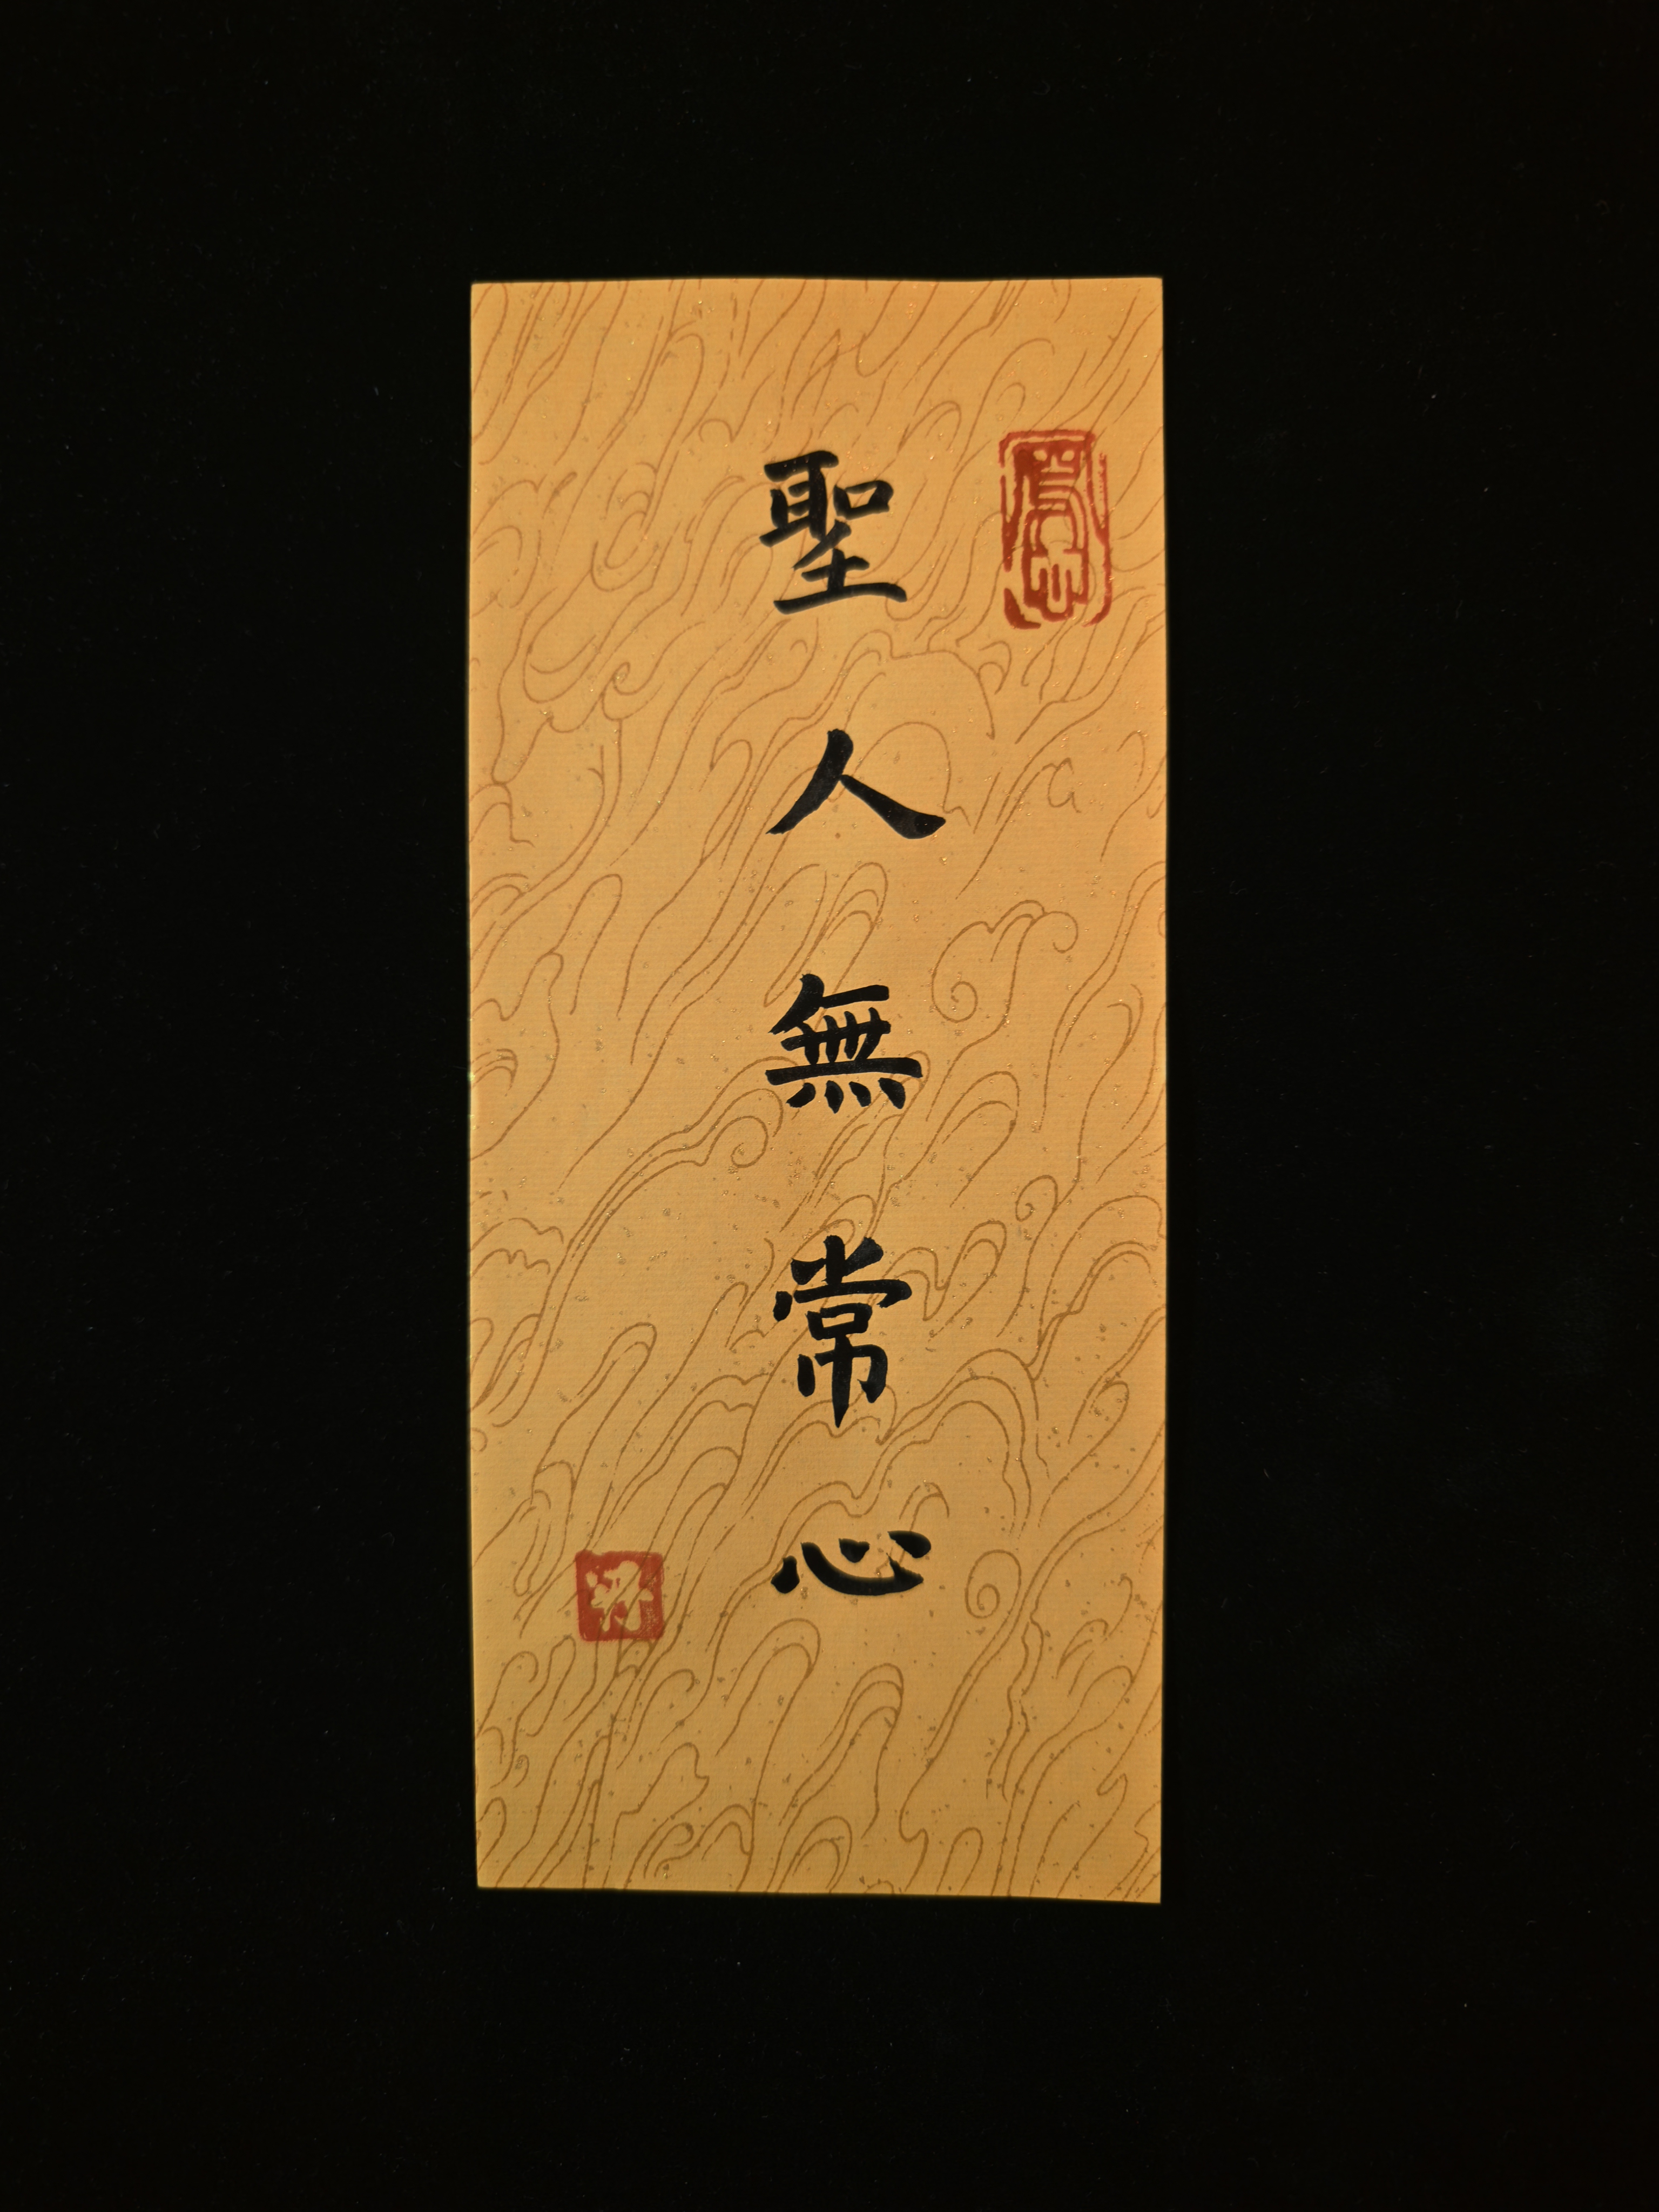 聖人無常心